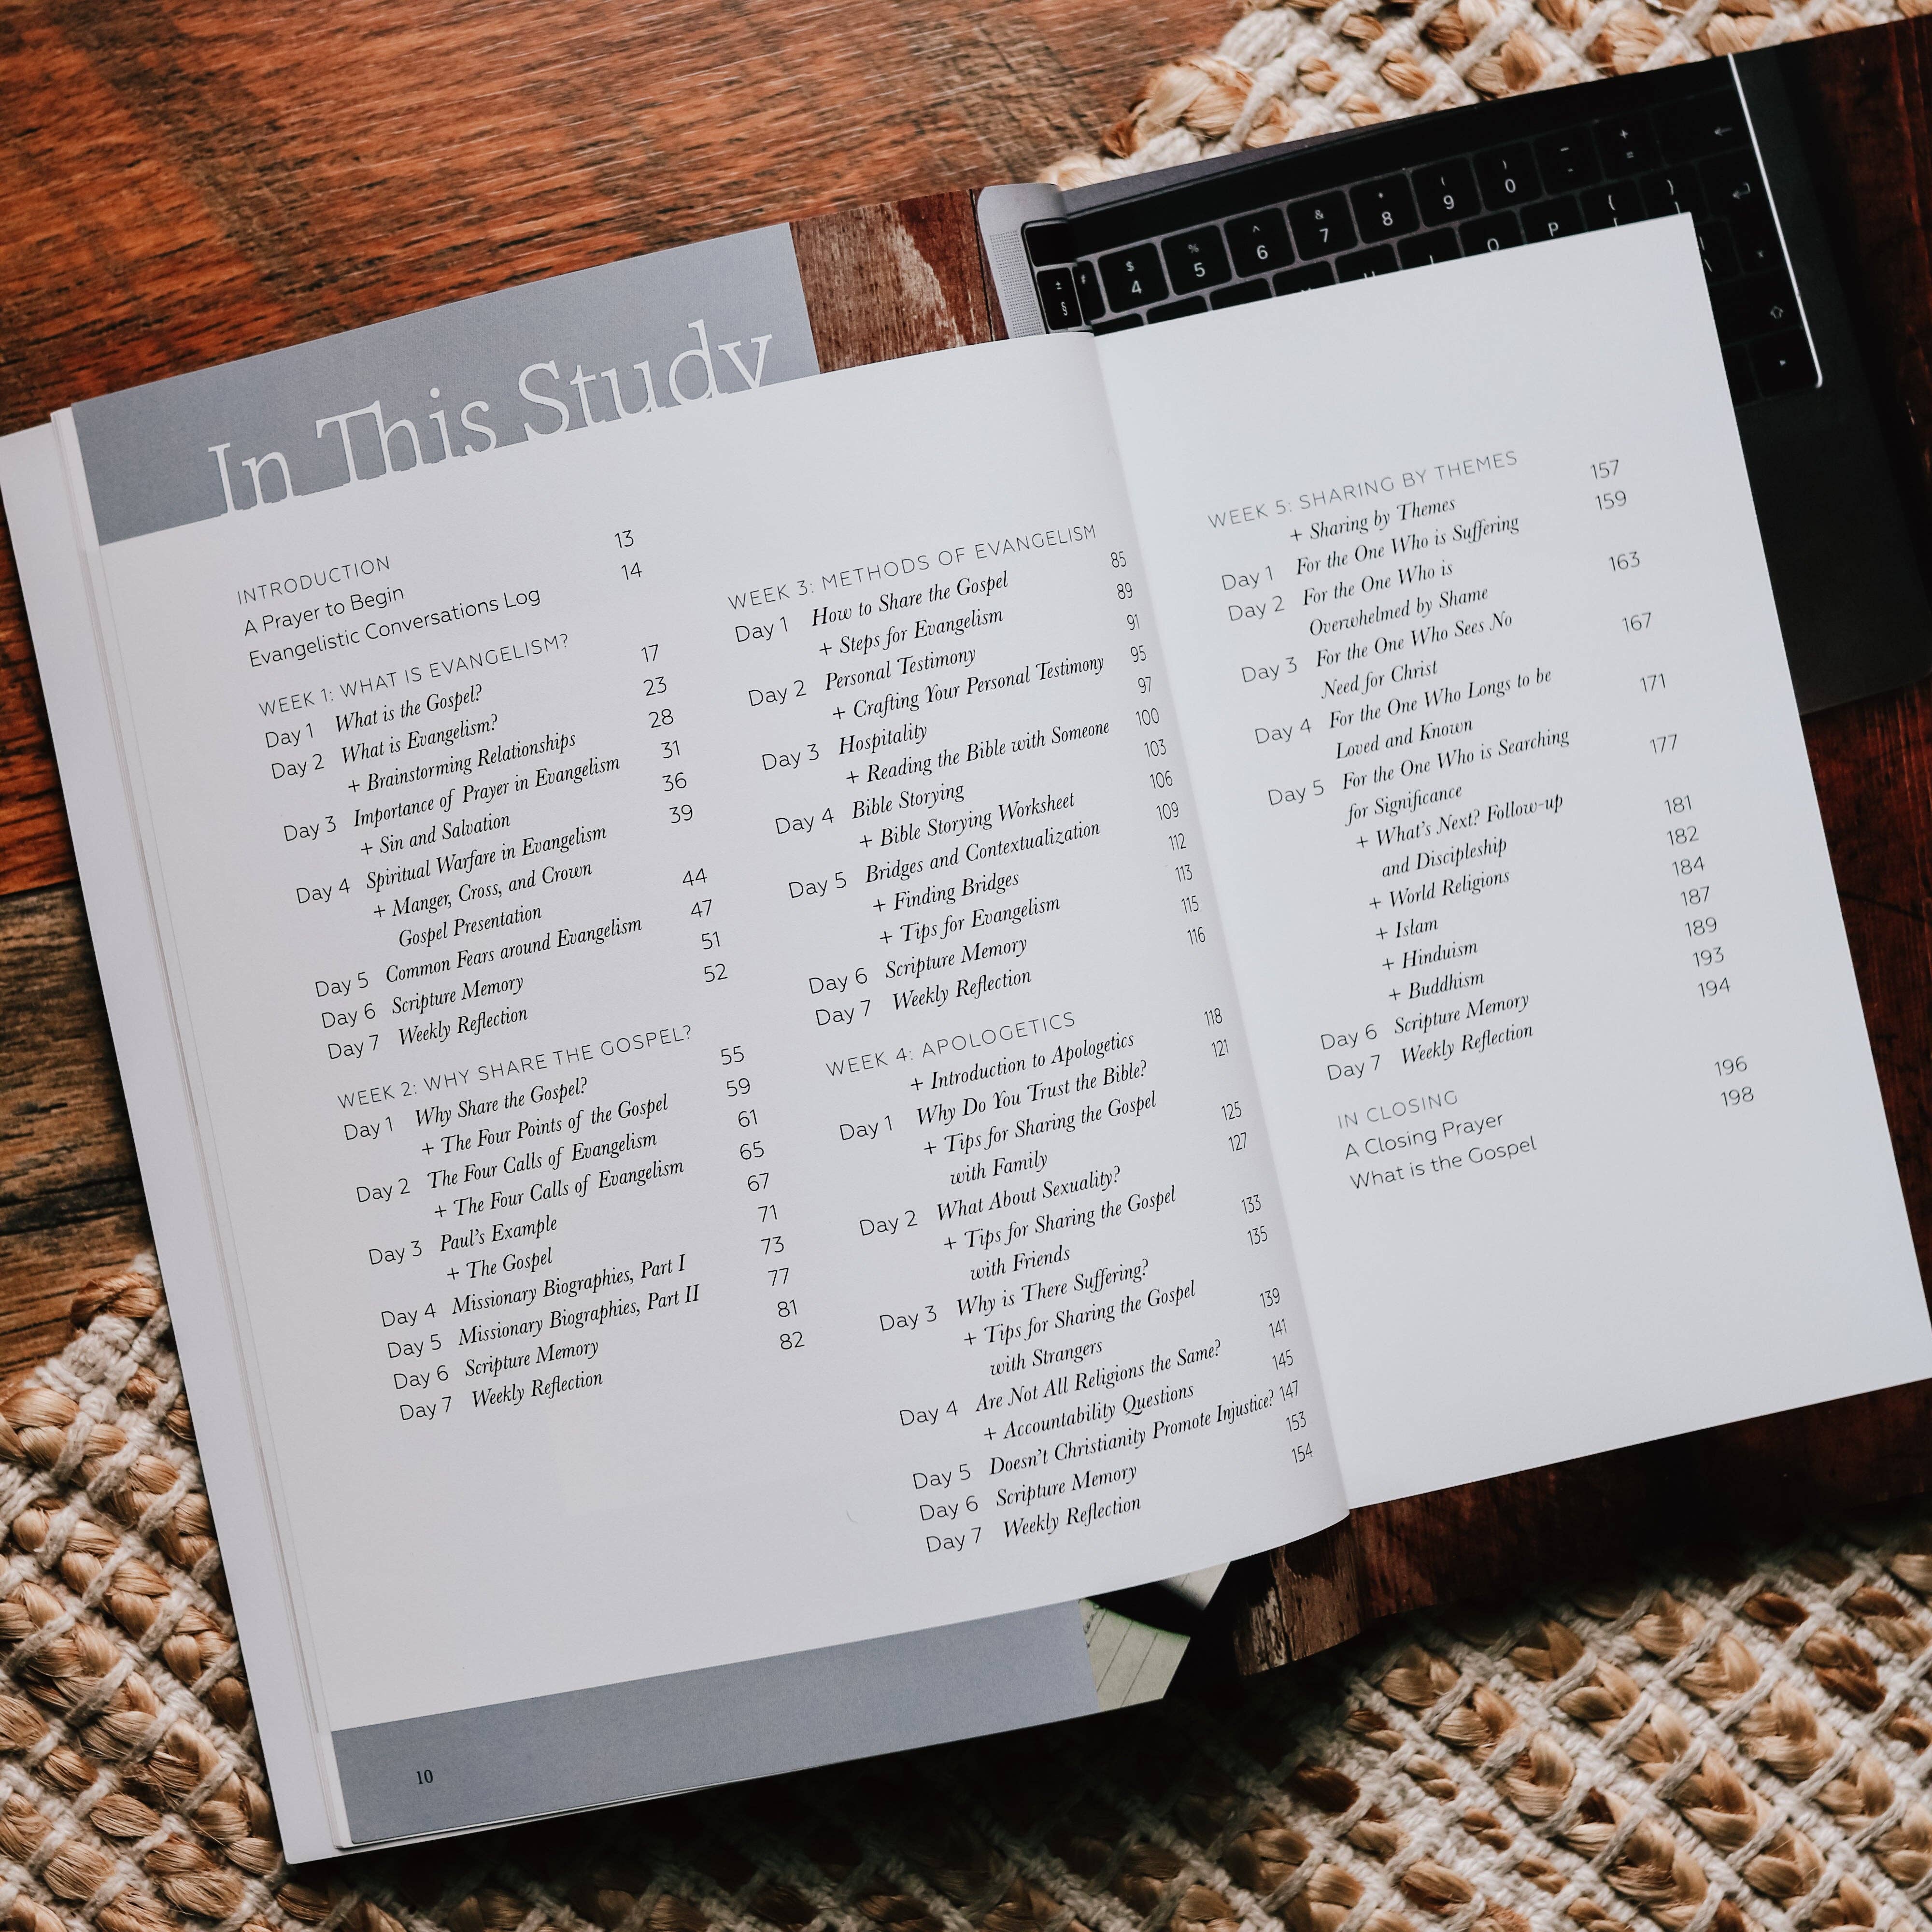 In This Study
INTRODUCTION
A Prayer to Begin 13
Evangelistic Conversations Log 14
WEEK 1: WHAT IS EVANGELISM?
Day 1 What is the Gospel? 17
Day 2 What is Evangelism? 23
+ Brainstorming Relationships 28
Day 3 Importance of Prayer in Evangelism 31
+ Sin and Salvation 36
Day 4 Spiritual Warfare in Evangelism 39
+ Manger, Cross, and Crown 44
Gospel Presentation
Day 5 Common Fears around Evangelism 47
Day 6 Scripture Memory 51
Day 7 Weekly Reflection 52
WEEK 2: WHY SHARE THE GOSPEL?
Day 1 Why Share the Gospel? 55
+ The Four Points of the Gospel 59
Day 2 The Four Calls of Evangelism 61
+ The Four Calls of Evangelism 65
Day 3 Paul's Example 67
+ The Gospel 71
Day 4 Missionary Biographies, Part I 73
Day 5 Missionary Biographies, Part II 77
Day 6 Scripture Memory 81
Day 7 Weekly Reflection 82
WEEK 3: METHODS OF EVANGELISM
Day 1 How to Share the Gospel 85
+ Steps for Evangelism 89
Day 2 Personal Testimony 91
+ Crafting Your Personal Testimony 95
Day 3 Hospitality 97
+ Reading the Bible with Someone 100
Day 4 Bible Storying 103
+ Bible Storying Worksheet 106
Day 5 Bridges and Contextualization 109
+ Finding Bridges 112
+ Tips for Evangelism 113
Day 6 Scripture Memory 115
Day 7 Weekly Reflection 116
WEEK 4: APOLOGETICS
+ Introduction to Apologetics 118
Day 1 Why Do You Trust the Bible? 121
+ Tips for Sharing the Gospel 125
with Family
Day 2 What About Sexuality? 127
+ Tips for Sharing the Gospel 133
with Friends
Day 3 Why is There Suffering? 135
+ Tips for Sharing the Gospel 139
with Strangers
Day 4 Are Not All Religions the Same? 141
+ Accountability Questions 145
Day 5 Doesn't Christianity Promote Injustice? 147
Day 6 Scripture Memory 153
Day 7 Weekly Reflection 154
10
WEEK 5: SHARING BY THEMES
+ Sharing by Themes 157
Day 1 For the One Who is Suffering 159
Day 2 For the One Who is 163
Overwhelmed by Shame
Day 3 For the One Who Sees No 167
Need for Christ
Day 4 For the One Who Longs to be 171
Loved and Known
Day 5 For the One Who is Searching 177
for Significance
+ What's Next? Follow-up 181
and Discipleship
+ World Religions 182
+ Islam 184
+ Hinduism 187
+ Buddhism 189
Day 6 Scripture Memory 193
Day 7 Weekly Reflection 194
IN CLOSING
A Closing Prayer 196
What is the Gospel 198
$ % ^ & * ( ) _ +
4 5 6 7 8 9 0 - =
O P { }